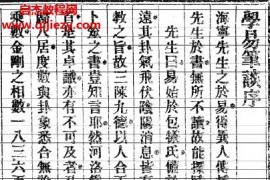 启杰教程网
qijiezazhi.com
學易筆談序
海寧先生於易得異人傳
先生於書無所不讀故能
先生曰易始於包犧氏
遠其卦氣飛伏陰陽消息皆
教之旨故三陳九德以人合
卜筮之書豈知言耶然河洛
其卓識亦有不可及者
居度數與卦象悉合無
乘數金剛之相數一八三六